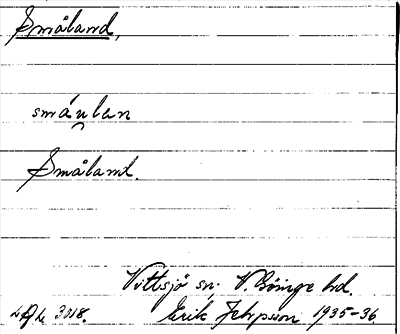 Småland,
smáu̯lan
Småland.
Vittsjö sn. V. Göinge hd.
3018. Erik Jeppsson 1935-36